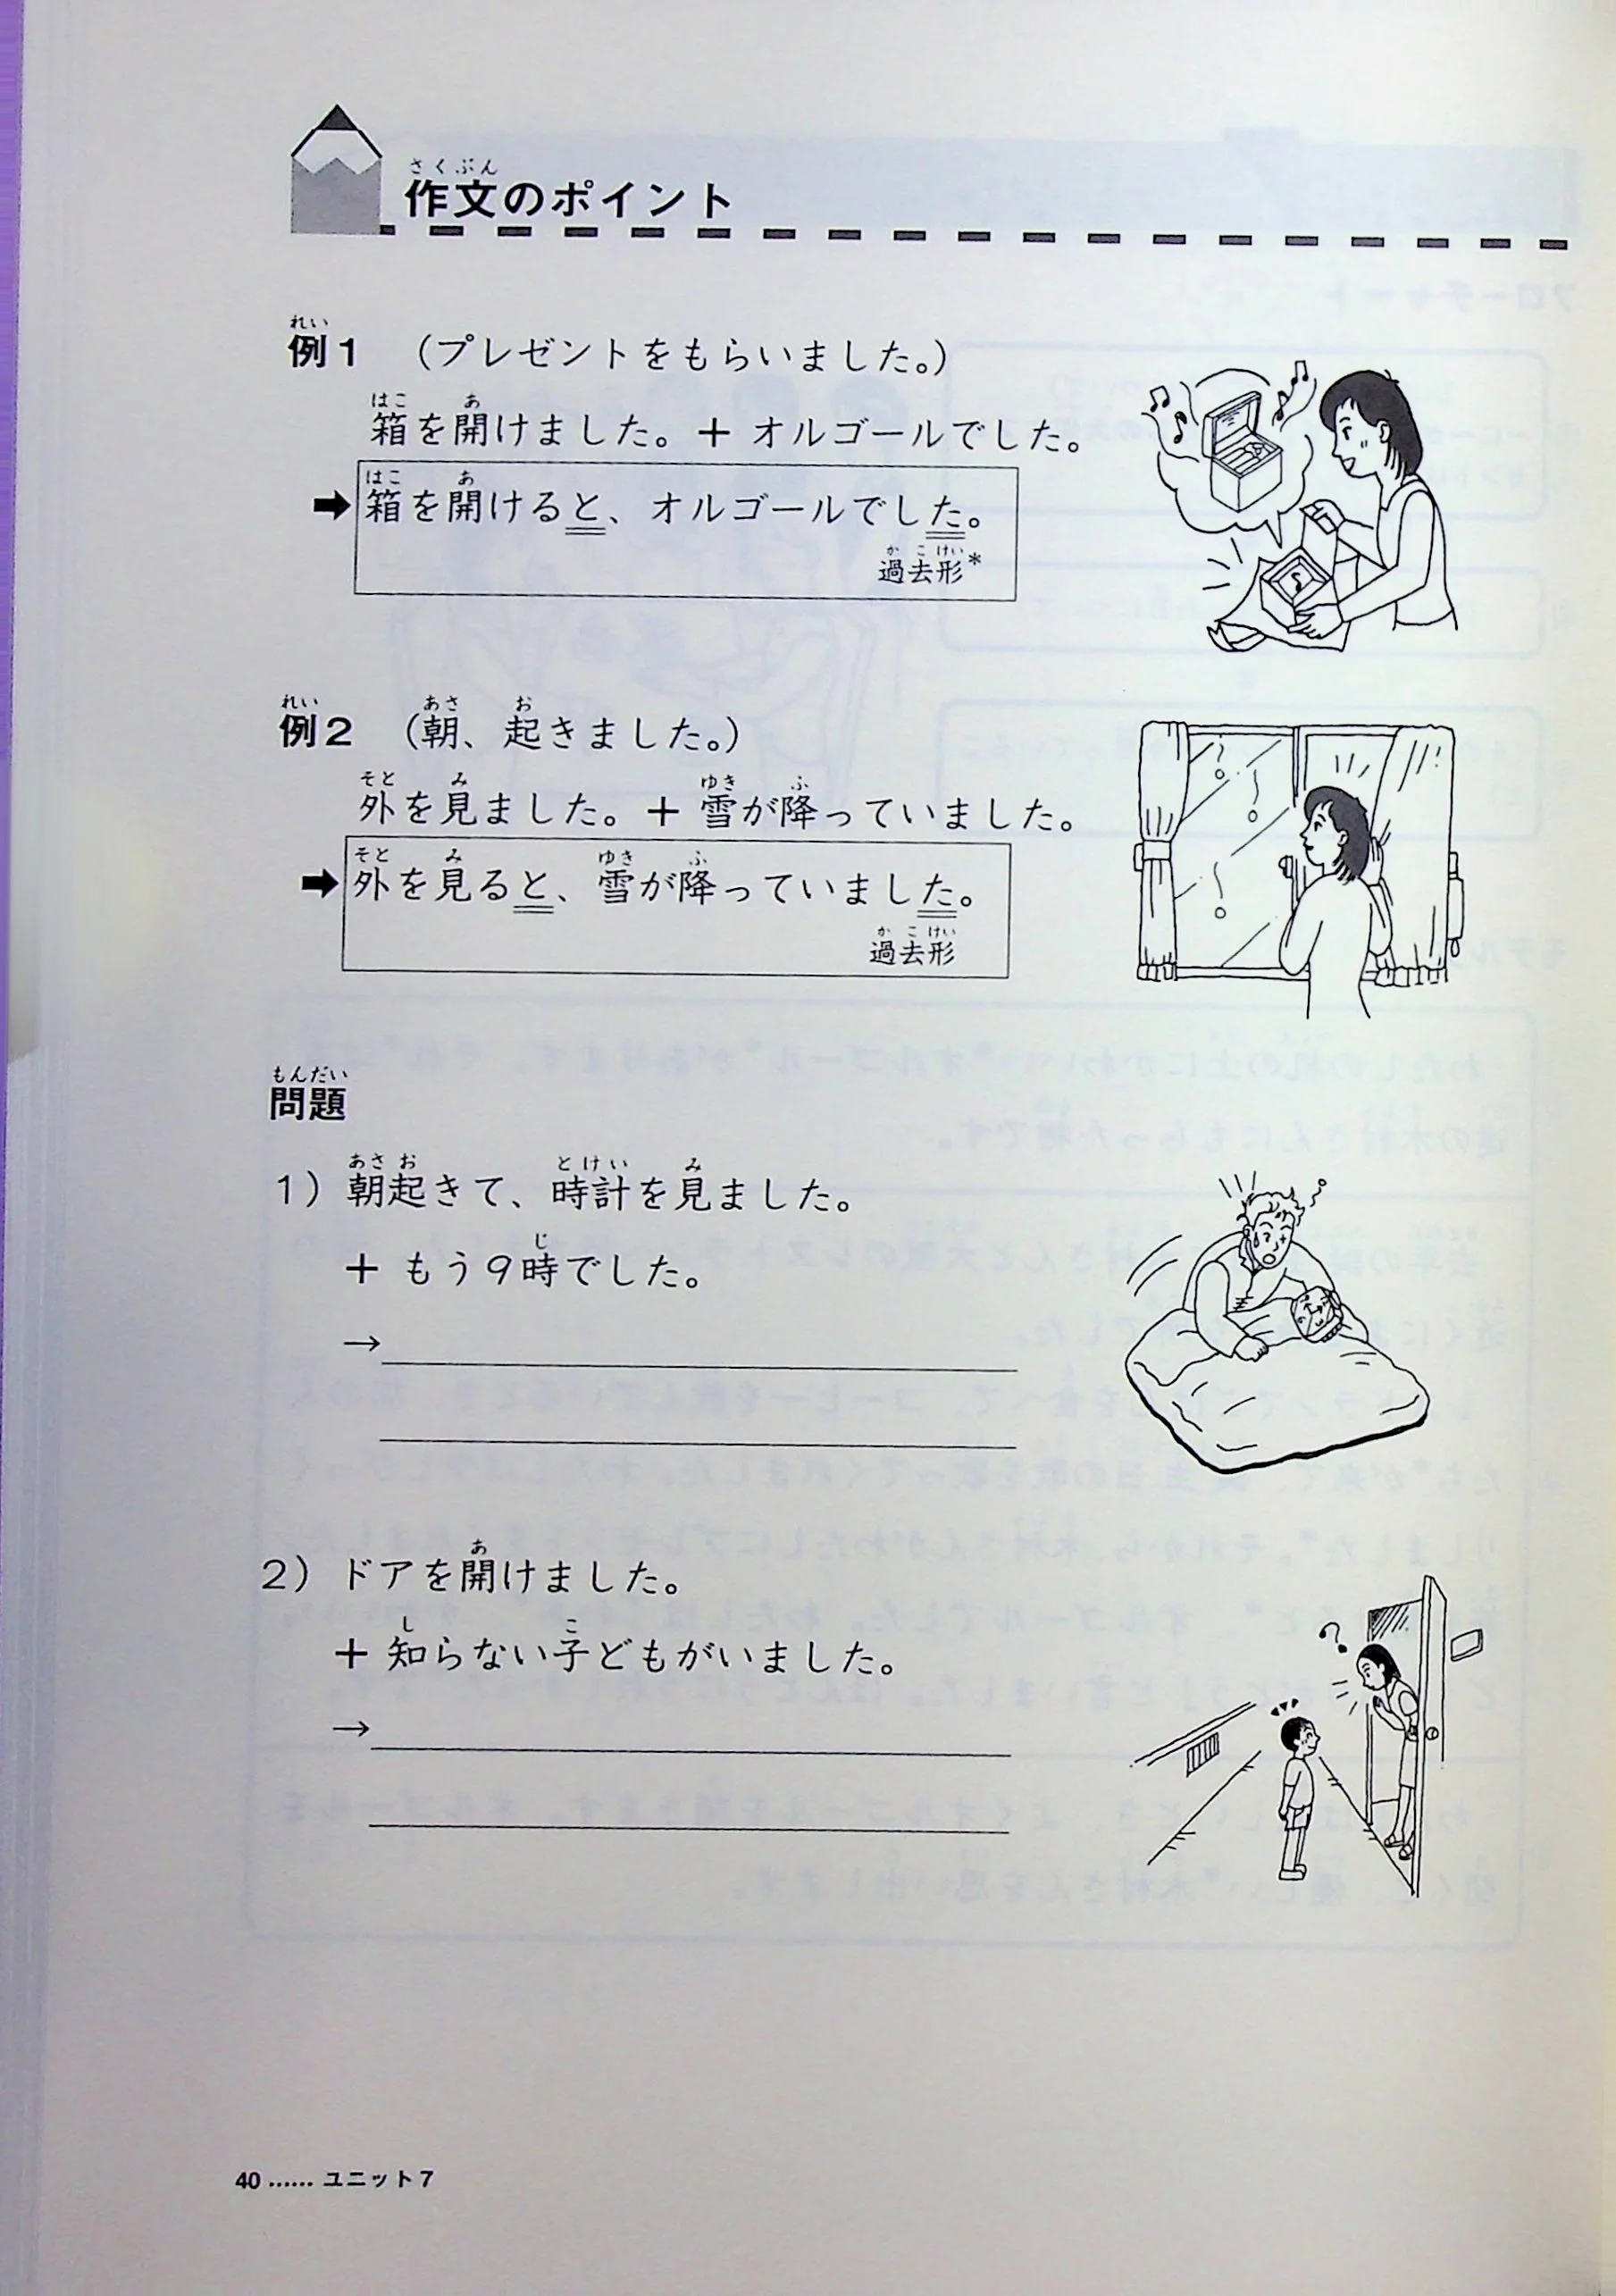 作文のポイント
例1 （プレゼントをもらいました。）
箱を開けました。＋ オルゴールでした。
➡ 箱を開けると、オルゴールでした。
過去形*
例2 （朝、起きました。）
外を見ました。＋ 雪が降っていました。
➡ 外を見ると、雪が降っていました。
過去形
問題
1）朝起きて、時計を見ました。
＋ もう9時でした。
→
2）ドアを開けました。
＋ 知らない子どもがいました。
→
40 …… ユニット7